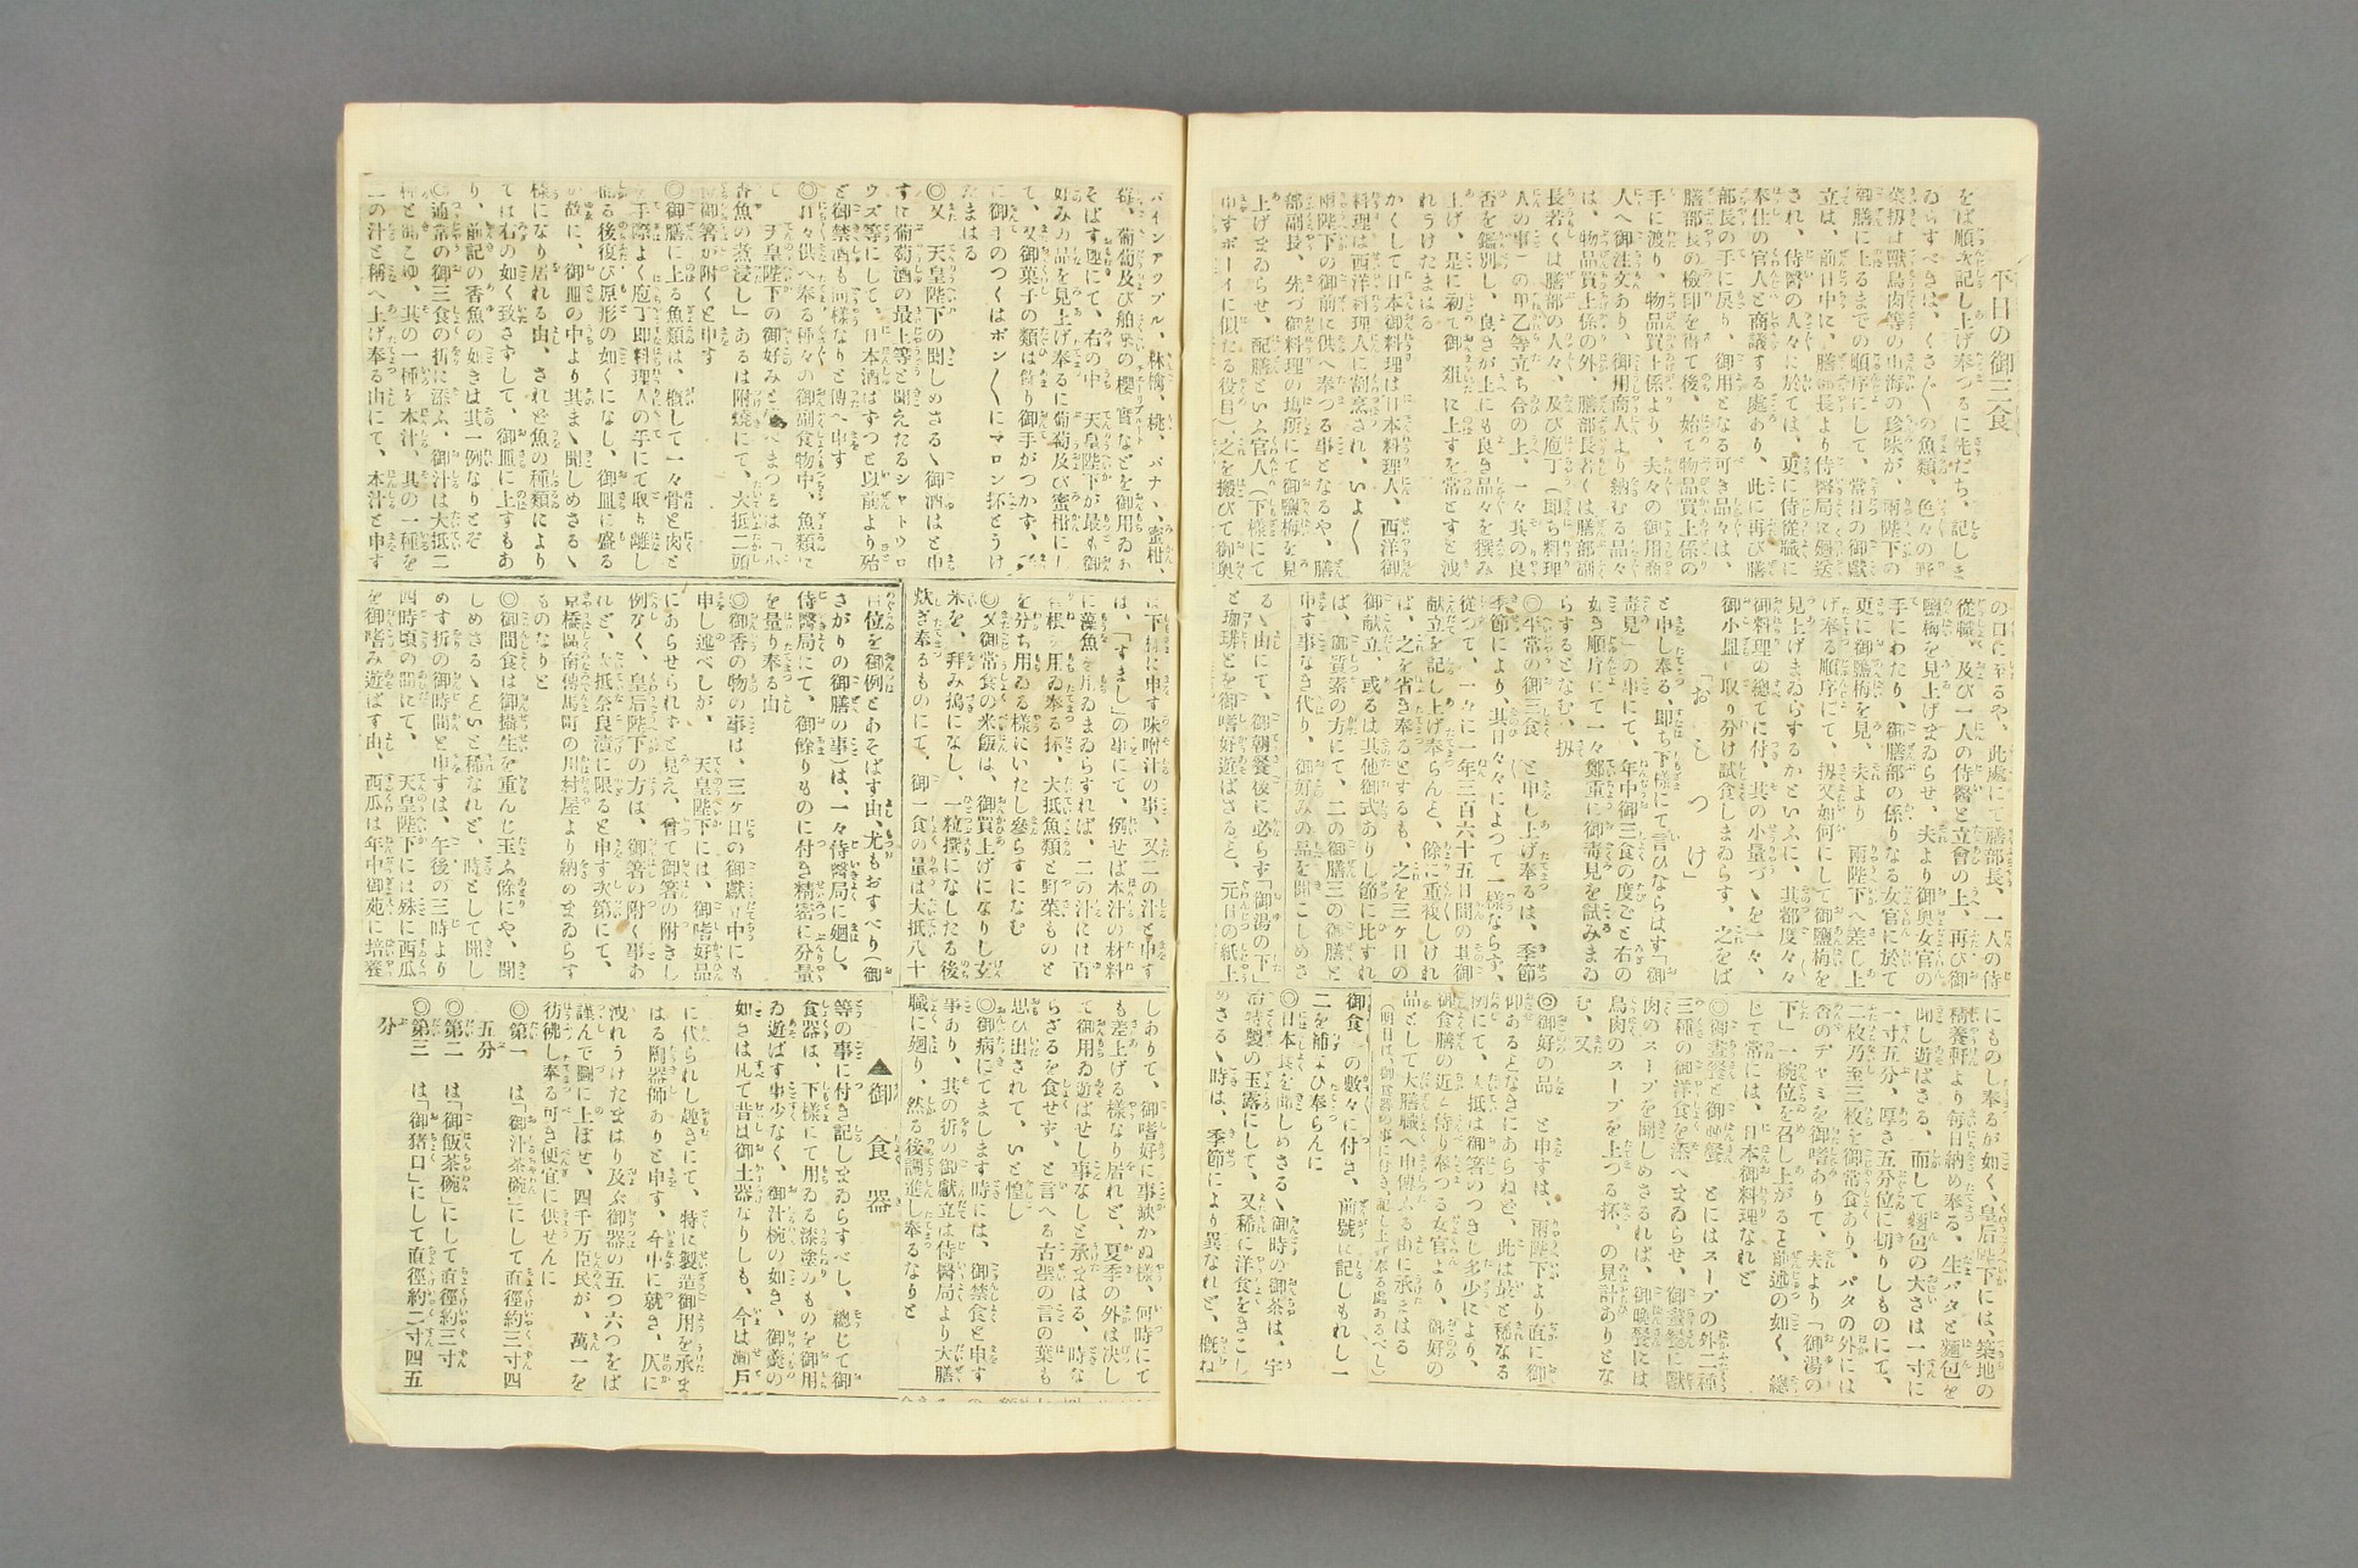 平日の御三食
をば順次記し上げ奉つるに先だち、記しま
ゐらすべきは、くさ〲の魚類、色々の野
菜扨は獸鳥肉等の山海の珍味が、兩陛下の
御膳に上るまでの順序にして、當日の御獻
立は、前日中に、膳部長より侍醫局に廻送
され、侍醫の人々に於ては、更に侍從職に
奉仕の官人と商議する處あり、此に再び膳
部長の手に戻り、御用となる可き品々は、
膳部長の檢印を得て後、始て物品買上係の
手に渡り、物品買上係より、夫々の御用商
人へ御注文あり、御用商人より納むる品々
は、物品買上係の外、膳部長若くは膳部副
長若くは膳部の人々、及び庖丁(即ち料理
人の事)の甲乙等立ち合の上、一々其の良
否を鑑別し、良きが上にも良き品々を撰み
上げ、是に初て御俎に上すを常とすと洩
れうけたまはる
かくして日本御料理は日本料理人、西洋御
料理は西洋料理人に割烹され、いよ〱
兩陛下の御前に供へ奉つる事となるや、膳
部副長、先づ御料理の塲所にて御鹽梅を見
上げまゐらせ、配膳といふ官人(下樣にて
申すボーイに似たる役目)、之を搬びて御奧
の口に至るや、此處にて膳部長、一人の侍
從職、及び一人の侍醫と立會の上、再び御
鹽梅を見上げまゐらせ、夫より御奧女官の
手にわたり、御膳部の係りなる女官に於て
更に御鹽梅を見、夫より 兩陛下へ差し上
げ奉る順序にて、扨又如何にして御鹽梅を
見上げまゐらするかといふに、其都度々々
御料理の總てに付、其の小量づゝを一々、
御小皿に取り分け試食しまゐらす、之をば
「おしつけ」
と申し奉る、即ち下樣にて言ひならはす「御
毒見」の事にて、年中御三食の度ごと右の
如き順序にて一々鄭重に御毒見を試みまゐ
らするとなむ、扨
◎平常の御三食 と申し上げ奉るは、季節
季節により、其日々々によつて一樣ならず、
從つて、一々に一年三百六十五日間の其御
献立を記し上げ奉らんと、餘に重複しけれ
ば、之を省き奉るとするも、之を三ヶ日の
御献立、或るは其他御式ありし節に比すれ
ば、御質素の方にて、二の御膳三の御膳と
申す事なき代り、御好みの品を聞こしめさ
るゝ由にて、御朝餐後に必らす「御湯の下」
と珈琲とを御嗜好遊ばさると、元日の紙上
にものし奉るが如く、皇后陛下には、築地の
精養軒より毎日納め奉る、生バタと麵包を
聞し遊ばさる、而して麵包の大さは一寸に
一寸五分、厚さ五分位に切りしものにて、
二枚乃至三枚を御常食あり、バタの外には
杏のヂャミを御嗜ありて、夫より「御湯の
下」一碗位を召し上がると前述の如く、總
じて常には、日本御料理なれど
◎御晝餐と御晩餐 とにはスープの外二種
三種の御洋食を添へまゐらせ、御晝餐に獸
肉のスープを聞しめさるれば、御晩餐には
鳥肉のスープを上つる抔、の見計ありとな
む、又
◎御好の品 と申すは、兩陛下より直に御
仰あるとなきにあらねど、此は最と稀なる
例にて、大抵は御箸のつきし多少により、
御食膳の近く侍り奉つる女官より、御好の
品として大膳職へ申傳ふる由に承まはる
(明日は、御食器の事に付き、記し上げ奉る處あるべし)
御食 の數々に付き、前號に記しもれし一
二を補なひ奉らんに
◎日本食を聞しめさるゝ御時の御茶は、宇
治特製の玉露にして、又稀に洋食をきこし
めさるゝ時は、季節により異なれど、概ね
パインアップル、林檎、桃、バナヽ、蜜柑、
苺、葡萄及び舶來の櫻實などを御用ゐあ
そばす趣にて、右の中 天皇陛下が最も御
好みの品を見上げ奉るに葡萄及び蜜柑にし
て、又御菓子の類は餘り御手がつかず、
に御手のつくはボン〱にマロン抔とうけ
たまはる
◎又 天皇陛下の聞しめさるゝ御酒はと申
すに葡萄酒の最上等と聞えたるシャトウロ
ウズ等にして、日本酒はずつと以前より殆
ど御禁酒も同樣なりと傳へ申す
◎日々供へ奉る種々の御副食物中、魚類に
て 天皇陛下の御好みと
香魚の煮浸し」あるは附燒にて、大抵二頭
御箸が附くと申す
◎御膳に上る魚類は、概して一々骨と肉と
を手際よく庖丁即料理人の手にて取り離し
たる後後び原形の如くになし、御皿に盛る
が故に、御皿の中より其まゝ聞しめさるゝ
樣になり居れる由、されど魚の種類により
ては右の如く致さずして、御皿に上すもあ
り、前記の香魚の如きは其一例なりとぞ
◎通常の御三食の折に添ふ、御汁は大抵二
種と聞こゆ、其の一種を本汁、其の一種を
二の汁と稱へ上げ奉る由にて、本汁と申す
は下樣に申す味噌汁の事、又二の汁と申す
は、「すまし」の事にて、例せば本汁の材料
に藻魚を用ゐまゐらすれば、二の汁には百
合根を用ゐ奉る抔、大抵魚類と野菜ものと
を分ち用ゐる樣にいたし參らすになむ
◎又御常食の米飯は、御買上げになりし玄
米を、拜み搗になし、一粒撰になしたる後
炊ぎ奉るものにて、御一食の量は大抵八十
目位を御例とあそばす由、尤もおすべり(御
さがりの御膳の事)は、一々侍醫局に廻し、
侍醫局にて、御餘りものに付き精密に分量
を量り奉る由
◎御香の物の事は、三ヶ日の御獻立中にも
申し述べしが、 天皇陛下には、御嗜好品
にあらせられずと見え、曾て御箸の附きし
例なく、皇后陛下の方は、御箸の附く事あ
れど、大抵奈良漬に限ると申す次第にて、
京橋區南傳馬町の川村屋より納めまゐらす
ものなりと
◎御間食は御攝生を重んじ玉ふ餘にや、聞
しめさるゝといと稀なれど、時として聞し
めす折の御時間と申すは、午後の三時より
四時頃の間にて、 天皇陛下には殊に西瓜
を御嗜み遊ばす由、西瓜は年中御苑に培養
しありて、御嗜好に事缺かぬ樣、何時にて
も差上げる樣なり居れど、夏季の外は决し
て御用ゐ遊ばせし事なしと承まはる、時な
らざるを食せず、と言へる古聖の言の葉も
思ひ出されて、いと惶し
◎御病にてまします時には、御禁食と申す
事あり、其の折の御獻立は侍醫局より大膳
職に廻り、然る後調進し奉るなりと
▲御食器
等の事に付き記しまゐらすべし、總じて御
食器は、下樣にて用ゐる漆塗のものを御用
ゐ遊ばす事少なく、御汁椀の如き、御羹の
如きは凡て昔は御土器なりしも、今は瀬戸
に代られし趣きにて、特に製造御用を承ま
はる陶器師ありと申す、今中に就き、仄に
洩れうけたまはり及ぶ御器の五つ六つをば
謹んで圖に上ぼせ、四千万臣民が、萬一を
彷彿し奉る可き便宜に供せんに
◎第一 は「御汁茶碗」にして直徑約三寸四
五分
◎第二 は「御飯茶碗」にして直徑約三寸
◎第三 は「御猪口」にして直徑約二寸四五
分